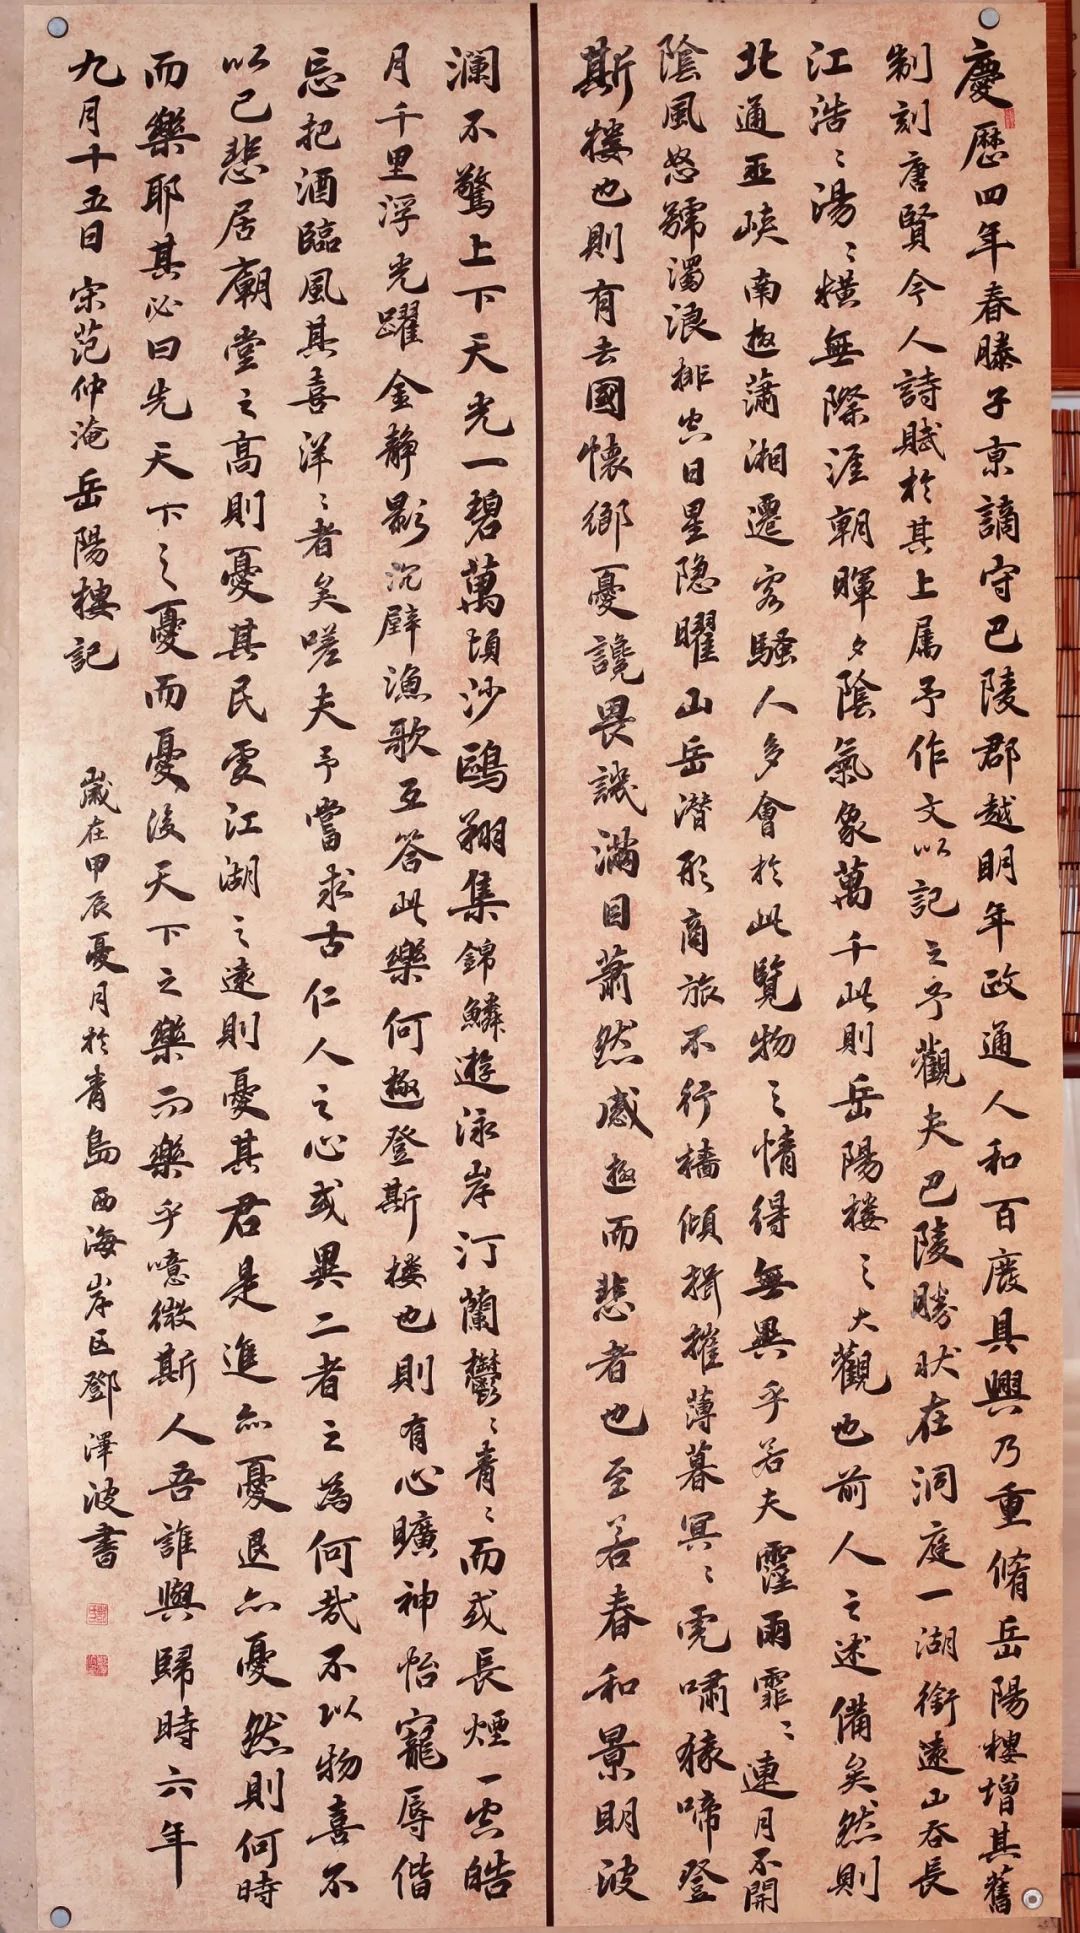 慶歷四年春滕子京謫守巴陵郡越明年政通人和百廢具興乃重脩岳陽樓增其舊
制刻唐賢今人詩賦於其上属予作文以記之予觀夫巴陵勝狀在洞庭一湖銜遠山吞長
江浩〻湯〻橫無際涯朝暉夕陰氣象萬千此則岳陽楼之大觀也前人之述備矣然則
北通巫峽南極瀟湘遷客騷人多會於此覽物之情得無異乎若夫霪雨霏〻連月不開
陰風怒號濁浪排空日星隐曜山岳潜形商旅不行檣傾楫摧薄暮冥〻虎嘯猿啼登
斯楼也則有去國懷鄉憂讒畏譏滿目蕭然感極而悲者也至若春和景明波
澜不驚上下天光一碧萬頃沙鷗翔集錦鱗遊泳岸汀蘭鬱〻青〻而或長煙一空皓
月千里浮光躍金靜影沉璧漁歌互答此樂何極登斯楼也則有心曠神怡寵辱偕
忘把酒臨風其喜洋〻者矣嗟夫予嘗求古仁人之心或異二者之為何哉不以物喜不
以己悲居廟堂之高則憂其民處江湖之遠則憂其君是進亦憂退亦憂然則何時
而樂耶其必曰先天下之憂而憂後天下之樂而樂乎噫微斯人吾誰與歸時六年
九月十五日宋范仲淹岳陽樓記
歲在甲辰憂月於青島西海岸区鄧澤波書